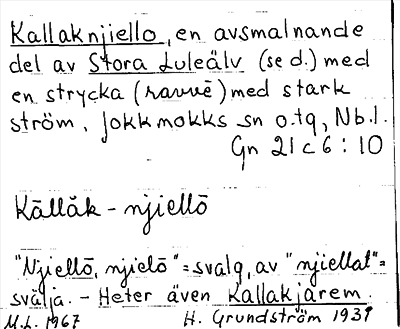 Kallaknjiello, en avsmalnande
del av Stora Luleälv (se d.) med
en strycka (ravvē) med stark
ström, Jokkmokks sn o.tg, Nb.l.
Gn 21 c 6:10
Kāllǎk - njiellō
"Njiellō, njielō" = svalg, av "njiellat" =
svälja. - Heter även Kallakjarem.
M.L. 1967 H. Grundström 1931